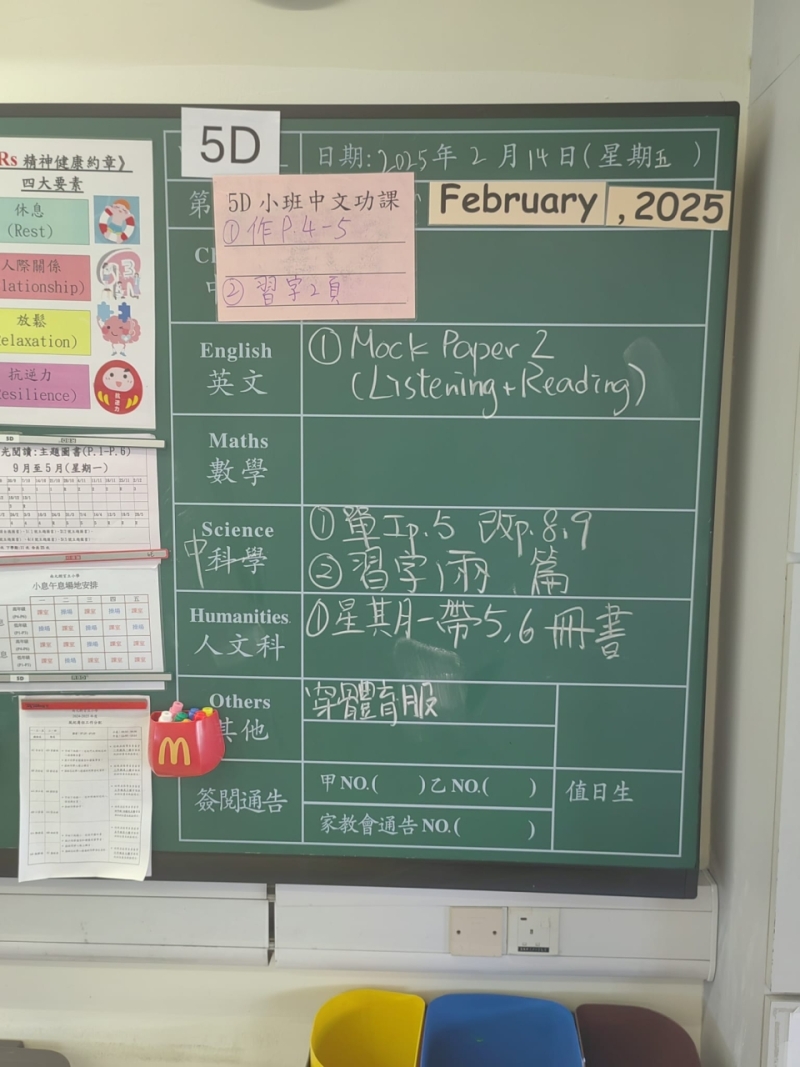 5D
日期:2025年2月14日(星期五)
第
February , 2025
5D小班中文功課
①作P.4-5
②習字2頁
Rs 精神健康約章》
四大要素
休息
(Rest)
人際關係
lationship)
放鬆
elaxation)
抗逆力
esilience)
English
英文
①Mock Paper 2
(Listening+Reading)
Maths
數學
Science
中科學
①單工p.5 改p.8,9
②習字1兩篇
Humanities
人文科
①星期一帶5,6冊書
Others
其他
穿體育服
簽閱通告
甲NO.( )乙NO.( )
家教會通告NO.( )
值日生
光閱讀:主題圖書(P.1-P.6)
9月至5月(星期一)
小息午息場地安排
一 二 三 四 五